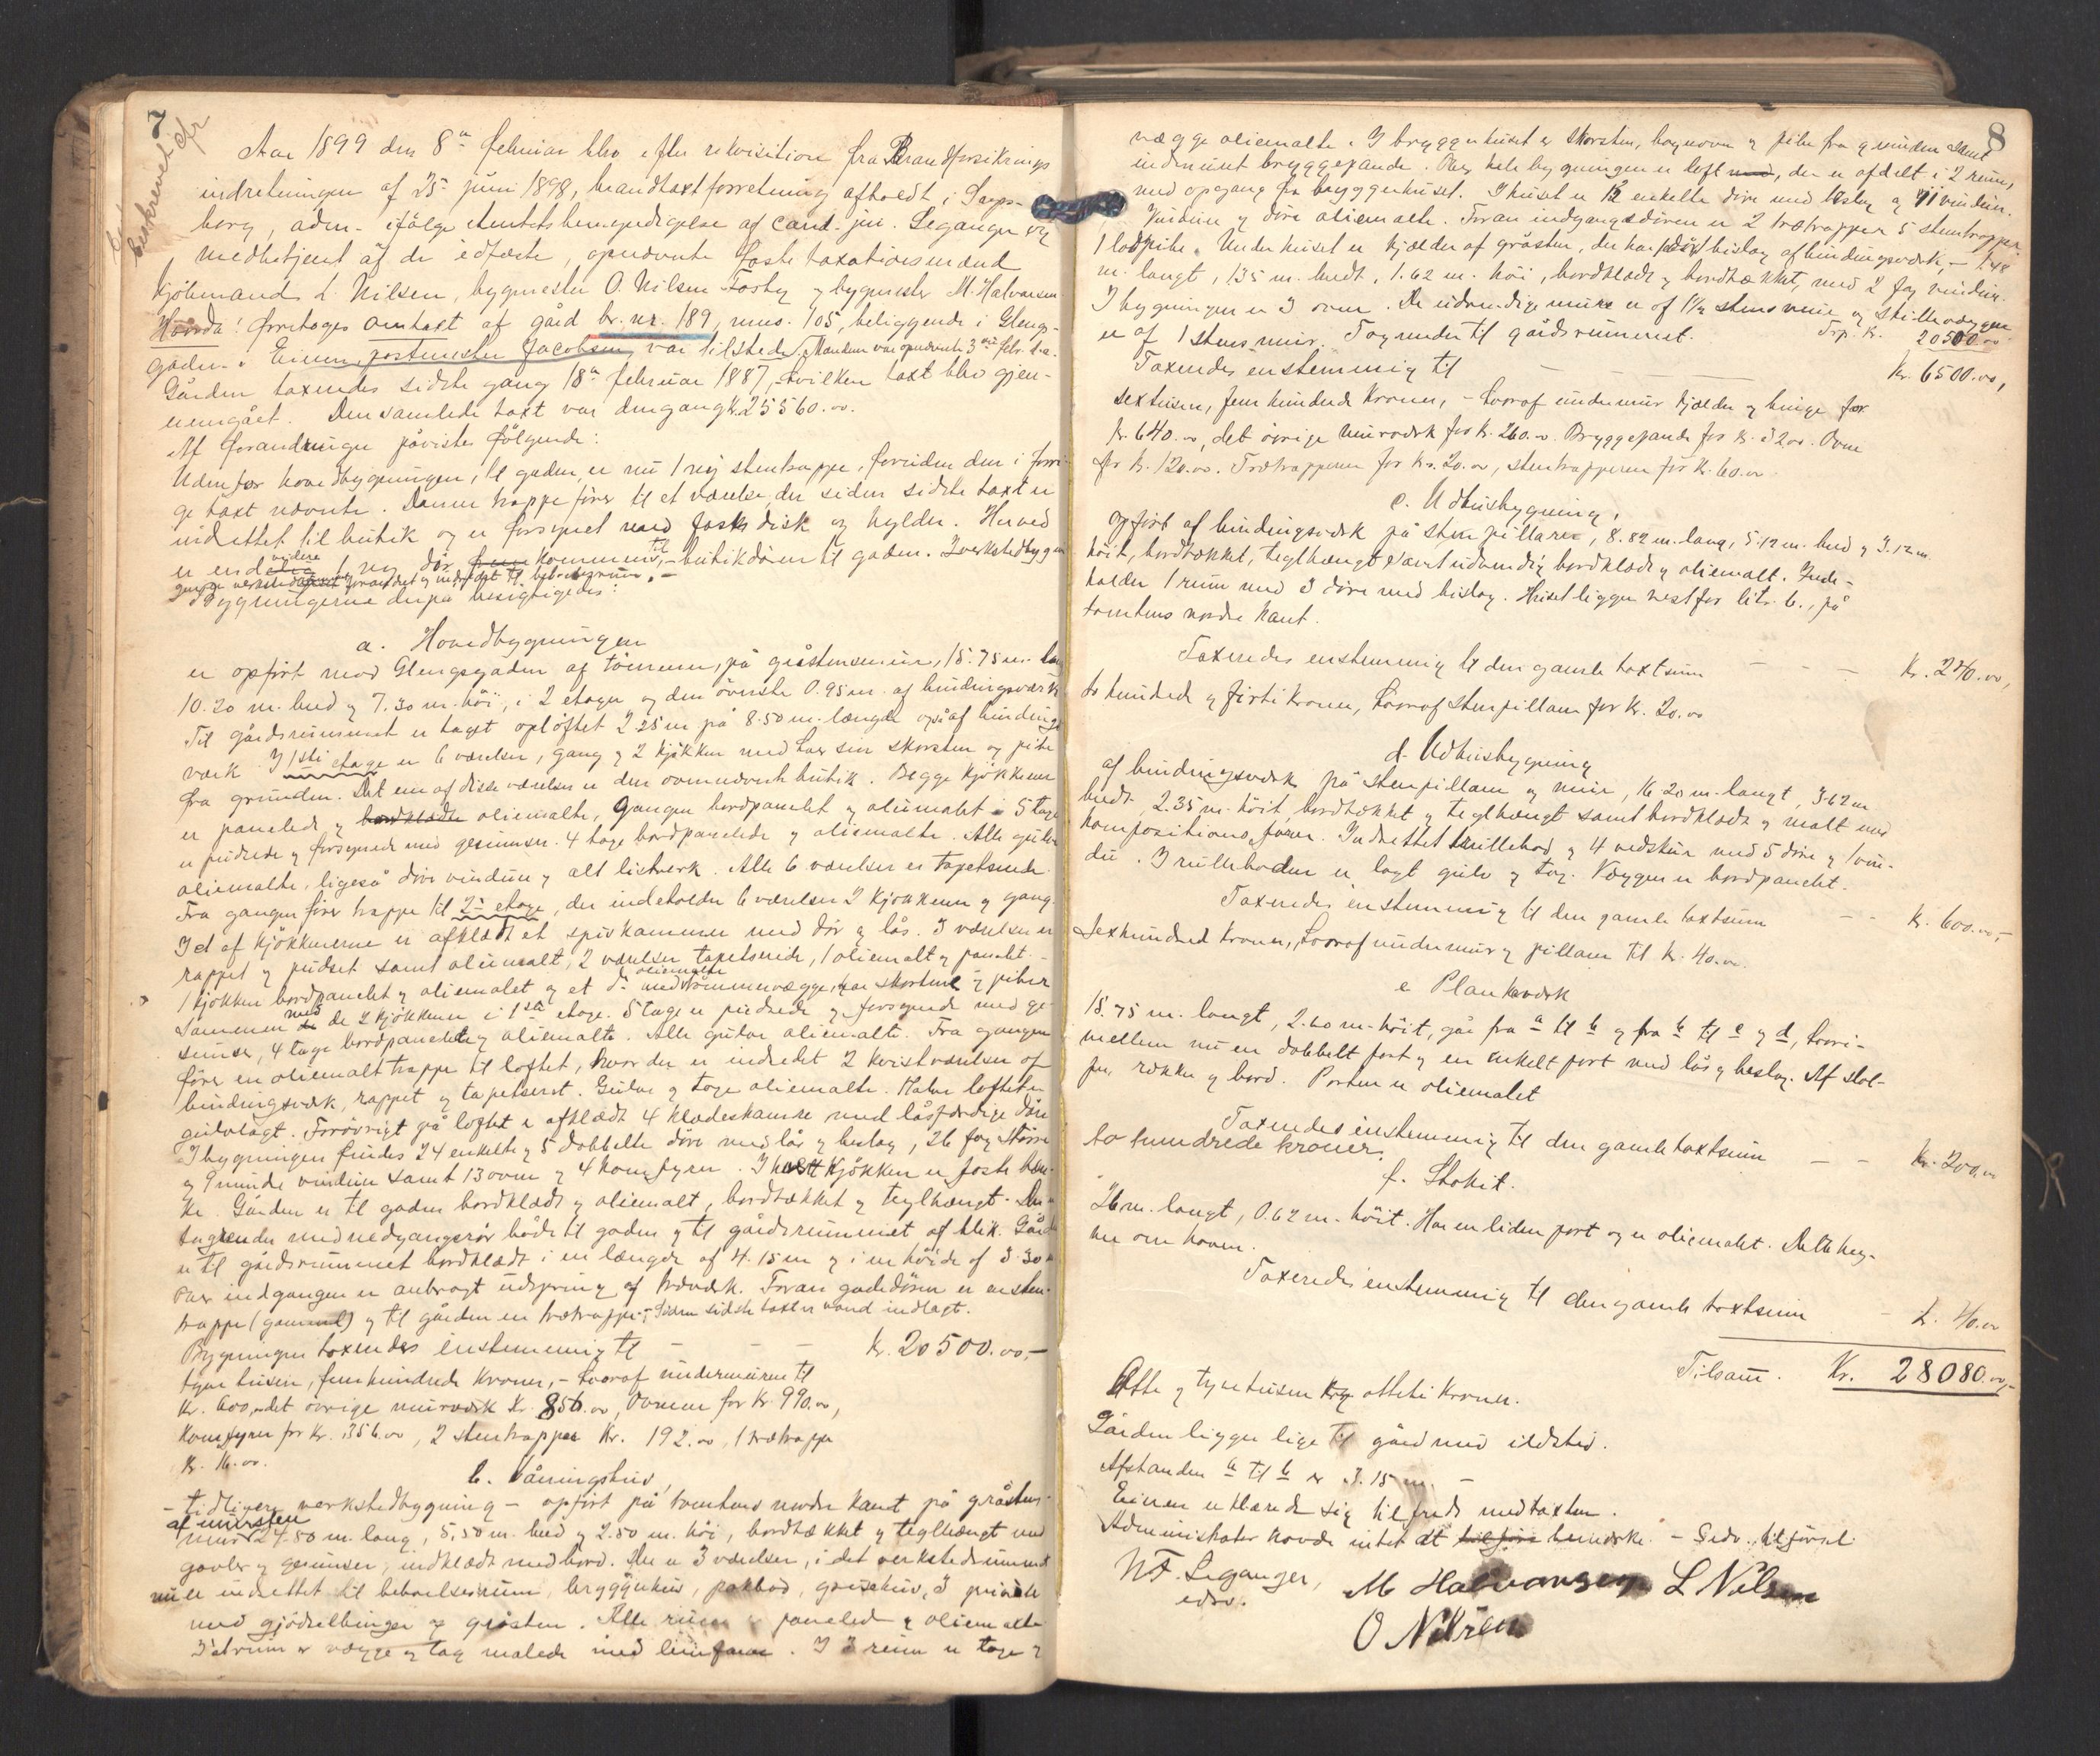 7
Udskrevet Cfr
Aar 1899 den 8de februar blev efter rekvisition fra Brandforsikrings
indretningen af 25. juni 1898, brandtaxtforretning afholdt i Sarps-
borg, adm. ifölge Amtets bemyndigelse af cand. jur. Leganger og
medbetjent af de edfæste, opnævnte faste taxationsmænd
kjöbmand L. Nilsen, bygmester O. Nilsen Tosby og bygmester M. Halvorsen
Haarda! Foretoges omtaxt af gård br. nr. 189, mno. 105, beliggende i Glengs-
gaden. Eieren, postmester Jacobsen var tilstede. Manden var opnævnte 3die febr. d.a.
Gården taxeredes sidste gang 18de februar 1887, hvilken taxt blev gjen-
nemgået. Den samlede taxt var dengang kr. 25560.00.
Af forandringer påvistes fölgende:
Udenfor hovedbygningen, til gaden, er nu 1 ny stentrappe, foruden den i forri-
ge taxt nævnte. Denne trappe förer til et værelse, der siden sidste taxt er
indrettet til butik og er forsynet med fast disk og hylder. Herved
er endvidere 1 ny dör kommen til, - butikdören til gaden.
Bygningerne derpå besigtigedes:
a. Hovedbygningen
er opfört mod Glengsgaden af tömmer, på gråstensmur, 15.75 m. lang
10.20 m. bred og 7.30 m. höi, i 2 etager og den överste 0.95 m. af bindingsværk
Til gårdsrummet er taget oplöftet 2.25 m på 8.50 m. længde også af bindings
værk. I 1ste etage er 6 værelser, gang og 2 kjökken med hver sin skorsten og pibe
fra grunden. Det ene af disse værelser er den ovennævnte butik. Begge kjökkener
er panelede og bordklædte oliemalte, gangen bordpanelet og oliemalet. 5 tage
er pudsede og forsynede med gesimser. 4 tage bordpanelede og oliemalte. Alle gulve
oliemalte, ligeså döre vinduer og alt listverk. Alle 6 værelser er tapetserede
Fra gangen förer trappe til 2den etage, der indeholder 6 værelser 2 kjökkener og gang.
I et af kjökkenerne er afklædt et spiskammer med dör og lås. 3 værelser er
rappet og pudset samt oliemalt, 2 værelser tapetserede, 1 oliemalt og panelt
1 kjökken bordpanelet og oliemalet og et do. med oliemalte tömmervægge, har skorstene og piber
sammen med de 2 kjökkener i 1ste etage. 5 tage er pudsede og forsynede med ge-
simser, 4 tage bordpanelede og oliemalte. Alle gulve oliemalte. Fra gangen
förer en oliemalt trappe til loftet, hvor der er indredet 2 kvistværelser af
bindingsværk, rappet og tapetseret. Gulve og tage oliemalte. Halve loftet er
gulvlagt. Forövrigt på loftet er afklædt 4 klædeskamre med låsfærdige döre
I bygningen findes 24 enkelte og 5 dobbelte döre med lås og beslag, 26 fag större
og 9 mindre vinduer samt 13 ovne og 4 komfyrer. I hvert kjökken er faste bæn-
ke. Gården er til gaden bordklædt og oliemalt, bordtækket og teglhængt. Der er
tagrender med nedgangsrör både til gaden og til gårdsrummet af blik. Gården
er til gårdsrummet bordklædt i en længde af 4.15 m og i en höide af 3.30 m
Over indgangen er anbragt udspring af træværk. Foran gadedören er en sten-
trappe (gammel) og til gården en trætrappe. - Siden sidste taxt er vand indlagt.
Bygningen taxeredes enstemmig til - - - kr. 20500.00,-
tyve tusen, femhundrede kroner, - hvoraf undermuren til
kr. 600, det övrige murværk kr. 856.00, Ovnene for kr. 990.00,
Komfyrer for kr. 356.00, 2 stentrapper kr. 192.00, 1 trætrappe
kr. 16.00.
b. Våningshus,
- tidligere verkstedbygning - opfört på tomtens nordre kant på gråstens-
mur af mursten 24.80 m. lang, 5.50 m. bred og 2.80 m. höi, bordtækket og teglhængt med
gavler og gesimser, indklædt med bord. Der er 3 værelser, i det verkstedrummet
nu er indrettet til beboelsesrum, bryggerhus, pakbod, grisehus, 3 priveter
med gjödselbinger af gråsten. Alle rum er paneled og oliemalte
I et rum er vægge og tag malede med limfarve. I 3 rum er tage og
8
vægge oliemalte. I bryggerhuset er skorsten, bagerovn og pibe fra grunden samt
indmuret bryggepande. Over hele bygningen er loft, der er afdelt i 2 rum,
med opgang fra bryggerhuset. I huset er 12 enkelte döre med beslag og 11 vinduer.
Vinduer og döre oliemalte. Foran indgangsdören er 2 trætrapper 5 stentrapper
1 lodpibe. Under huset er kjælder af gråsten, der har bislag af bindingsværk, - 1.48
m. langt, 1.35 m. bredt, 1.62 m. höi, bordklædt og bordtækket, med 2 fag vinduer.
I bygningen er 3 ovne. De udvendige mure er af 1½ stens mur og skillevæggene
er af 1 stens mur. Tagrender til gårdsrummet. Trp. kr. 20500.00
Taxeredes enstemmig til - - - kr. 6500.00,
sextusen, fem hundrede kroner, - hvoraf undermur kjælder og binge for
kr. 640.00, det övrige murværk for kr. 260.00. Bryggepande for kr. 32.00. Ovne
for kr. 120.00. Trætrapperne for kr. 20.00, stentrapperne for kr. 60.00
c. Udhusbygning,
opfört af bindingsværk på stenpillarer, 8.82 m. lang, 5.12 m. bred og 3.12 m.
höit, bordtækket, teglhængt samt udvendig bordklædt og oliemalt. Inde-
holder 1 rum med 3 döre med bislag. Huset ligger vest for litr. b., på
tomtens nordre kant.
Taxeredes enstemmig til den gamle taxtsum - - - kr. 240.00,
to hundrede og förti kroner, hvoraf stenpillarer for kr. 20.00
d. Udhusbygning
af bindingsværk på stenpillarer og mur, 16.20 m. langt, 3.62 m
bredt 2.35 m. höit, bordtækket og teglhængt samt bordklædt og malt med
kompositionsfarver. Indrettet til rullebod og 4 vedskur med 5 döre og 1 vin-
due. I rulleboden er lagt gulv og tag. Væggen er bordpanelet.
Taxeredes enstemmig til den gamle taxtsum - - kr. 600.00,-
Sexhundred kroner, hvoraf undermur og pillarer til kr. 40.00.
e Plankeværk
15.75 m. langt, 2.60 m. höit, går fra a til b og fra b til c og d, hvori-
mellem nu en dobbelt port og en enkelt port med lås og beslag. Af stol-
per, rækker og bord. Porten er oliemalet
Taxeredes enstemmig til den gamle taxtsum - - kr. 200.00
to hundrede kroner.
f. Stakit.
26 m. langt, 0.62 m. höit. Har en liden port og er oliemalet. Dette heg-
ner om haven.
Taxeredes enstemmig til den gamle taxtsum - kr. 40.00
Tilsam. Kr. 28080.00,-
Otte og tyvetusen og otteti kroner.
Gården ligger lige til gård med ildsted.
Afstanden a til b er 3.15 m. -
Eieren erklærede sig tilfreds med taxten.
Administrator havde intet at tilföie bemærke. -
N.F. Leganger, M Halvorsen L Nilsen
edsv.
O Nilsen